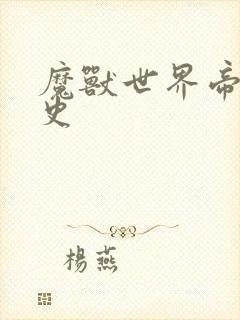 魔獸世界帝
史
楊燕